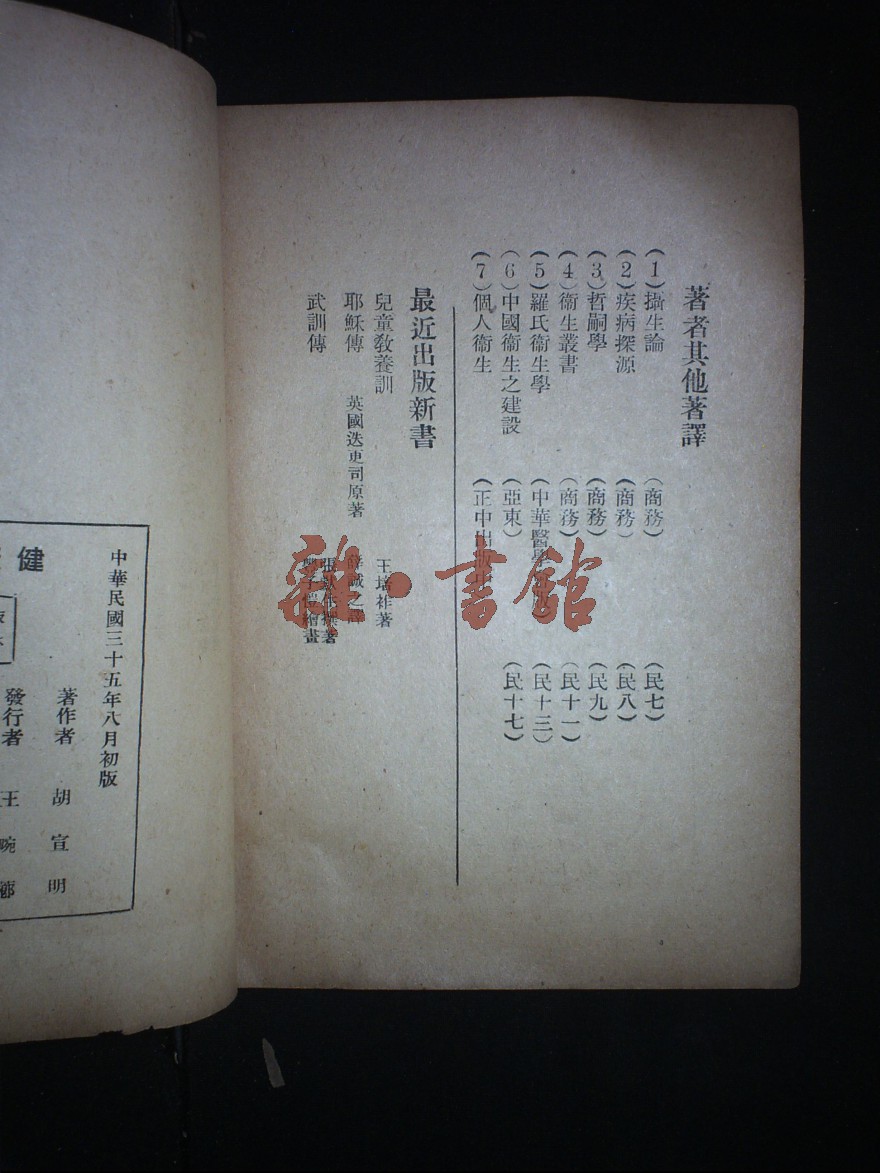 著者其他著譯
(1)攝生論 (商務) (民七)
(2)疾病探源 (商務) (民八)
(3)哲嗣學 (商務) (民九)
(4)衞生叢書 (商務) (民十一)
(5)羅氏衞生學 (中華醫學 (民十三)
(6)中國衞生之建設 (亞東) (民十七)
(7)個人衞生 (正中出版
最近出版新書
兒童教養訓 王培祚著
耶穌傳 英國迭更司原著 薛誠之譯
武訓傳 張默生撰著
繪畫
雜·書館
中華民國三十五年八月初版
著作者 胡宣明
發行者 王畹薌
健